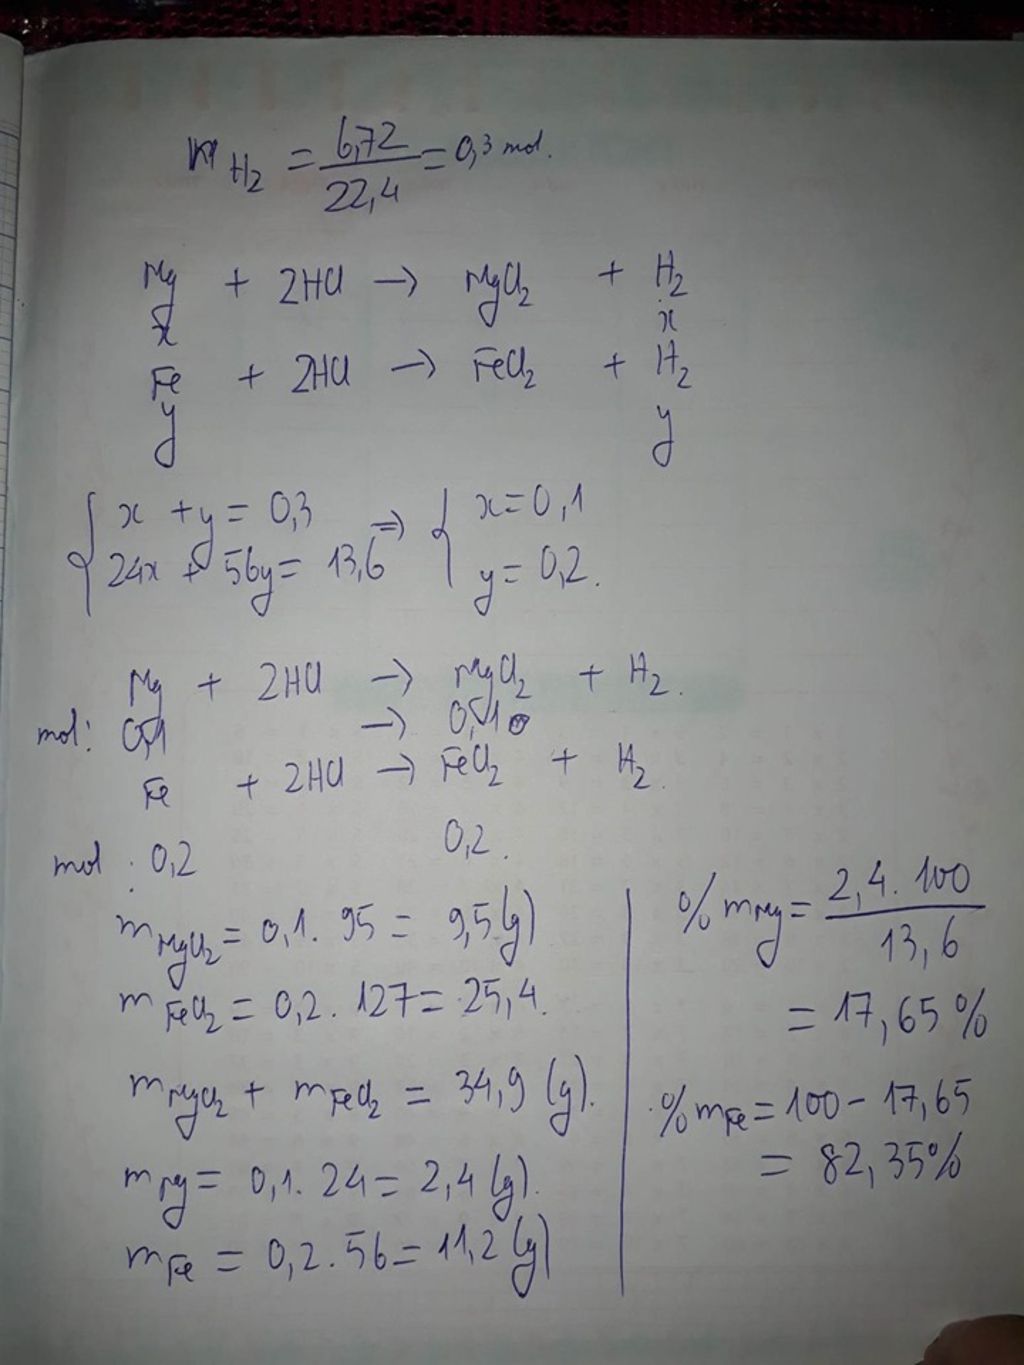 n H2 = 6,72 / 22,4 = 0,3 mol.
Mg + 2HCl → MgCl2 + H2
x x
Fe + 2HCl → FeCl2 + H2
y y
{ x + y = 0,3 ⇒ { x = 0,1
24x + 56y = 13,6 y = 0,2.
Mg + 2HCl → MgCl2 + H2.
mol: 0,1 → 0,1
Fe + 2HCl → FeCl2 + H2.
mol : 0,2 0,2.
mMgCl2 = 0,1. 95 = 9,5(g)
mFeCl2 = 0,2. 127 = 25,4.
mMgCl2 + mFeCl2 = 34,9 (g).
mMg = 0,1. 24 = 2,4 (g).
mFe = 0,2. 56 = 11,2 (g)
% mMg = 2,4. 100 / 13,6
= 17,65 %
% mFe = 100 - 17,65
= 82,35%